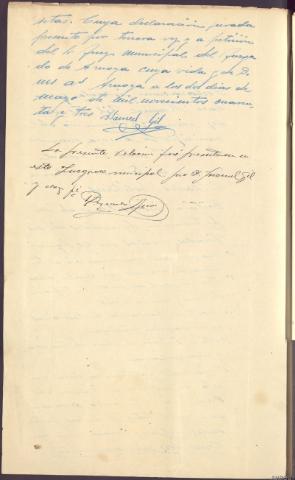 setas. Cuya declaración jurada
presento por tercera vez y a petición
del Sr. Juez Municipal del juzga
do de Arnoya cuya vida g. de D.
ms as Arnoya a los dos dias de
mayo de mil novecientos cuaren
ta y tres Manuel Gil
La presente relación fué presentada en
este Juzgado municipal por D. Manuel Gil
y doy fé